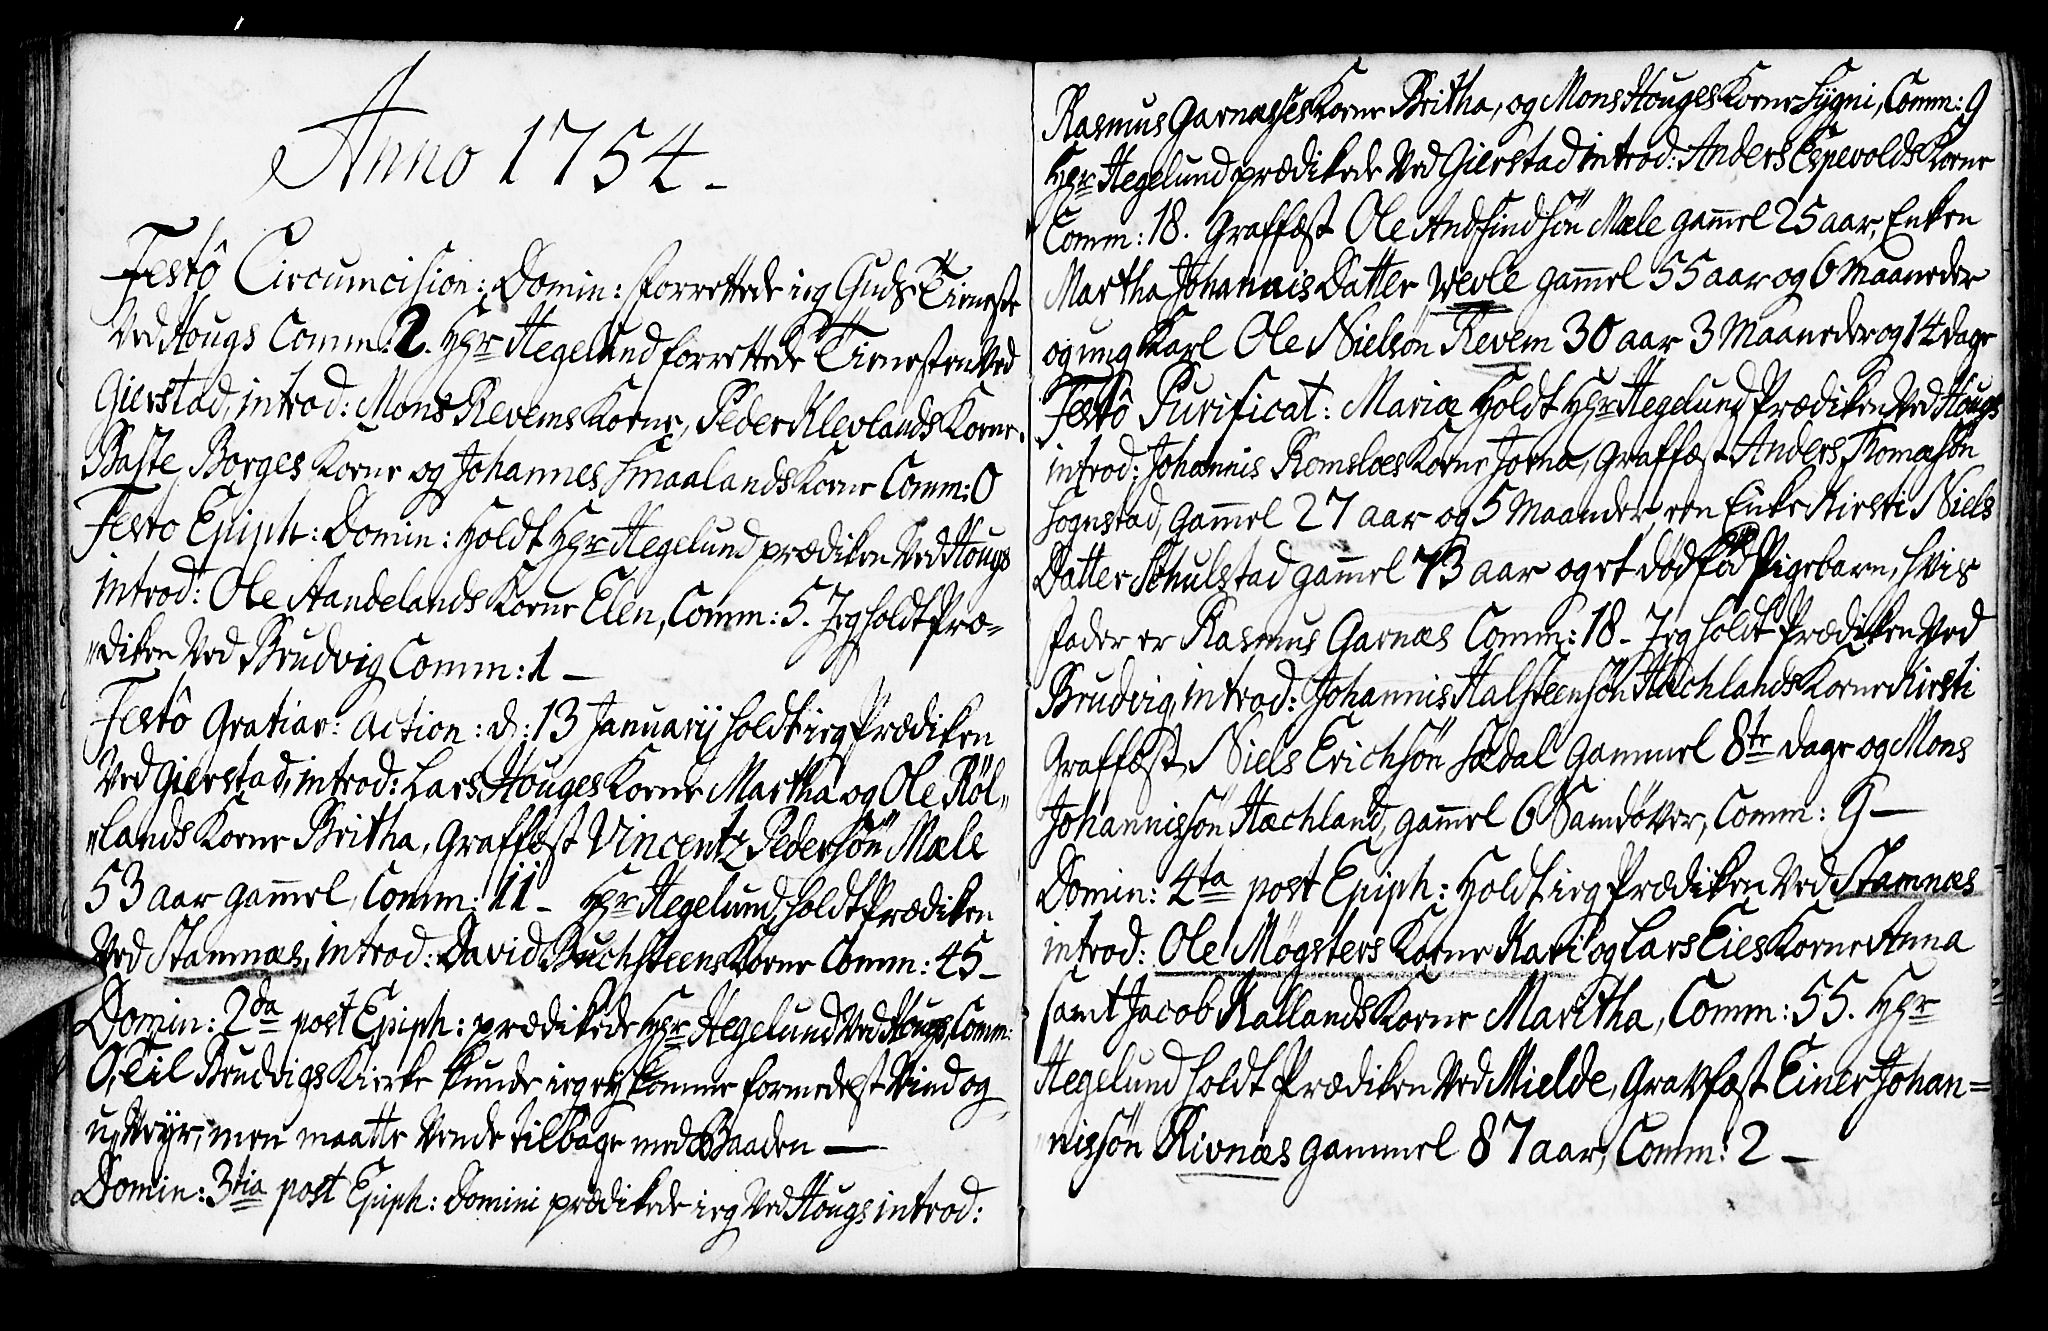 Anno 1754.
Festô Circumcision: Domin: forrettede ieg Guds Tieneste
Ved Hougs Comm: 2. Hgr Hegelund forrettede Tienesten Ved
Gierstad, introd: Mons Revems Korne, Peder Klevlands Korne
Baste Borges Korne og Johannes Smaalands Korne Comm: 0
Festo Epiph: Domin: Holdt Hgr Hegelund prædiken Ved Hougs
introd: Ole Aandelands Korne Elen, Comm: 5. Jeg holdt Præ=
"diken Ved Brudvig Comm: 1 —
Festô Gratiar: Action: d: 13 Januarij holdt ieg Prædiken
Ved Gierstad, introd: Lars Houges Korne Martha og Ole Röl"
"lands Korne Britha, Graffæst Vincentz Pedersön Mæle
53 aar gamel, Comm: 11 - Hgr Hegelund, holdt Prædiken
Ved Stamnæs, introd: David Buchsteens Korne Comm: 45 -
Domin: 2da post Epiph: prædikede Hgr Hegelund Ved Hougs, Comm:
0, Til Brudvigs Kierke kunde ieg ey komme formedelst Vind og
uVeyr, men maatte Vende tilbage med Baaden —
Domin: 3tia post Epiph: Domini prædikede ieg Ved Hougs introd:
Rasmus Garnæsses Korne Britha, og Mons Houges Korne Sygni, Comm: 9
Hgr Hegelund prædikede Ved Gierstad introd: Anders Espevolds Korne
Comm: 18. Graffæst Ole Andfindsön Mæle gamel 25 aar, Enken
Martha Johannis Datter Vevle gamel 55 aar og 6 Maaneder
og ung Karl Ole Nielsön Revem 30 aar 3 Maaneder og 14 dage
Festô Purificat: Mariæ Holdt Hgr Hegelund Prædiken Ved Hougs
introd: Johannis Romsloes Korne Jorna, Graffæst Anders Thomasön
Sognstad, gamel 27 aar og 5 Maaneder, en Enke Kirsti Niels
Datter Schulstad gamel 73 aar og et dödföd Pigebarn, hvis
fader er Rasmus Garnæs Comm: 18 - Jeg holdt Prædiken Ved
Brudvig, introd: Johannis Halsteensön Hæchlands Korne Kirsti
Graffæst Niels Erichsön Sædal Gammel 8te dage og Mons
Johannissön Hæchland, gamel 6 Samdöver, Comm: 9 —
Domin: 4ta post Epiph: Holdt ieg Prædiken Ved Stamnæs
introd: Ole Mögsters Korne Kari og Lars Eies Korne Anna
samt Jacob Kallands Korne Maritha, Comm: 55. Hgr
Hegelund holdt Prædiken Ved Mielde, Gravfæst Einer Johan=
"nissön Rivnæs gammel 87 aar, Comm: 2 —